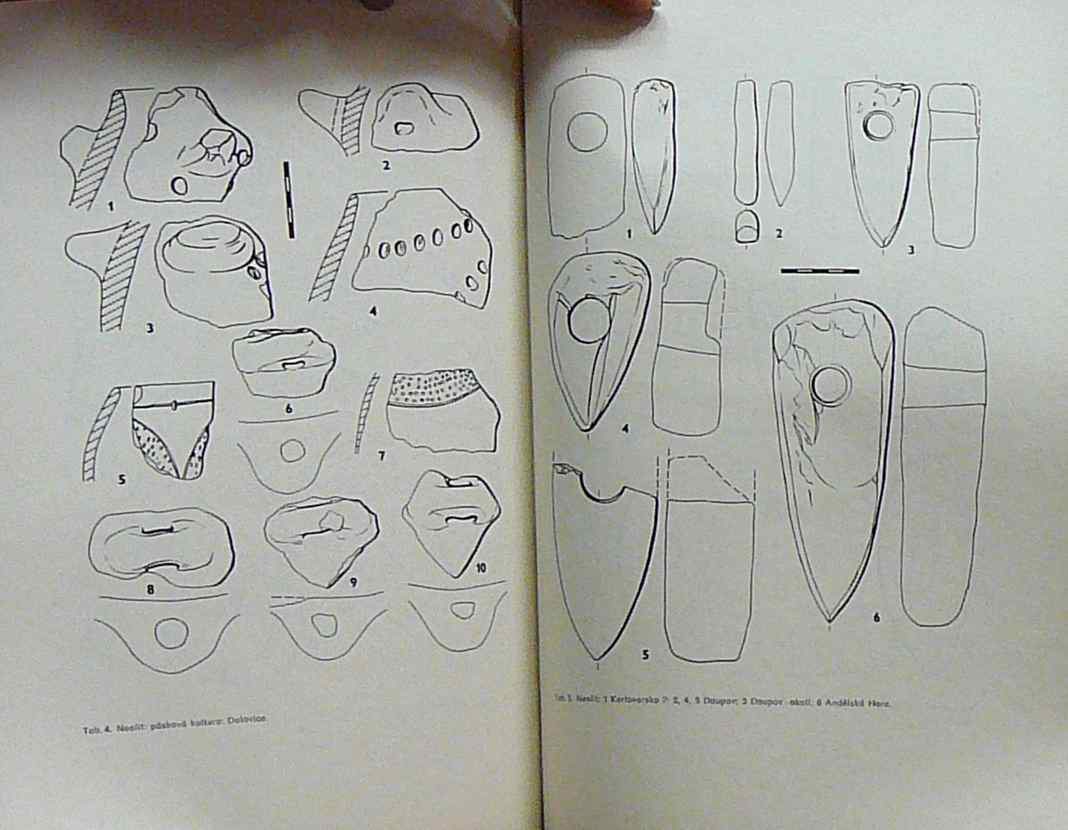 1
2
3
4
5
6
7
8
9
10
Tab. 4. Neolit: pásková kultura: Dalovice.
1
2
3
4
5
6
Tab. 5. Neolit: 1 Karlovarsko ?; 2, 4, 5 Doupov; 3 Doupov - okolí; 6 Andělská Hora.